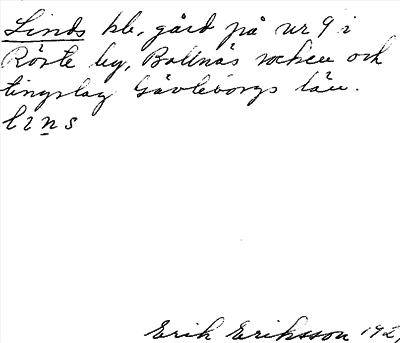 Linds hb, gård på nr 9 i
Röste by, Bollnäs socken och
tingslag Gävleborgs län.
lins
Erik Eriksson 192